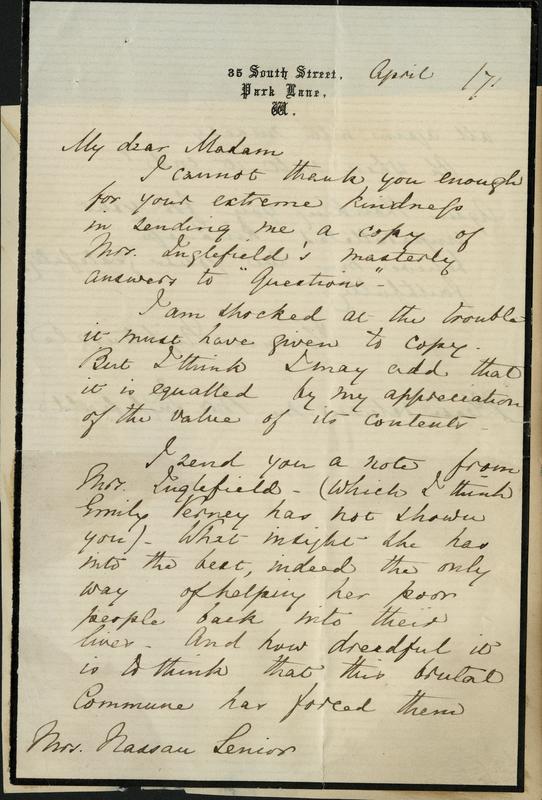 35 South Street, April /71
Park Lane,
W.
My dear Madam
I cannot thank you enough
for your extreme kindness
in sending me a copy of
Mrs. Inglefield's masterly
answers to "Questions" -
I am shocked at the trouble
it must have given to copy.
But I think I may add that
it is equalled by my appreciation
of the value of its contents -
I send you a note from
Mrs. Inglefield - (which I think
Emily Verney has not shown
you) - What insight she has
into the best, indeed the only
way of helping her poor
people back into their
lives - And how dreadful it
is to think that this brutal
Commune has forced them
Mrs. Nassau Senior